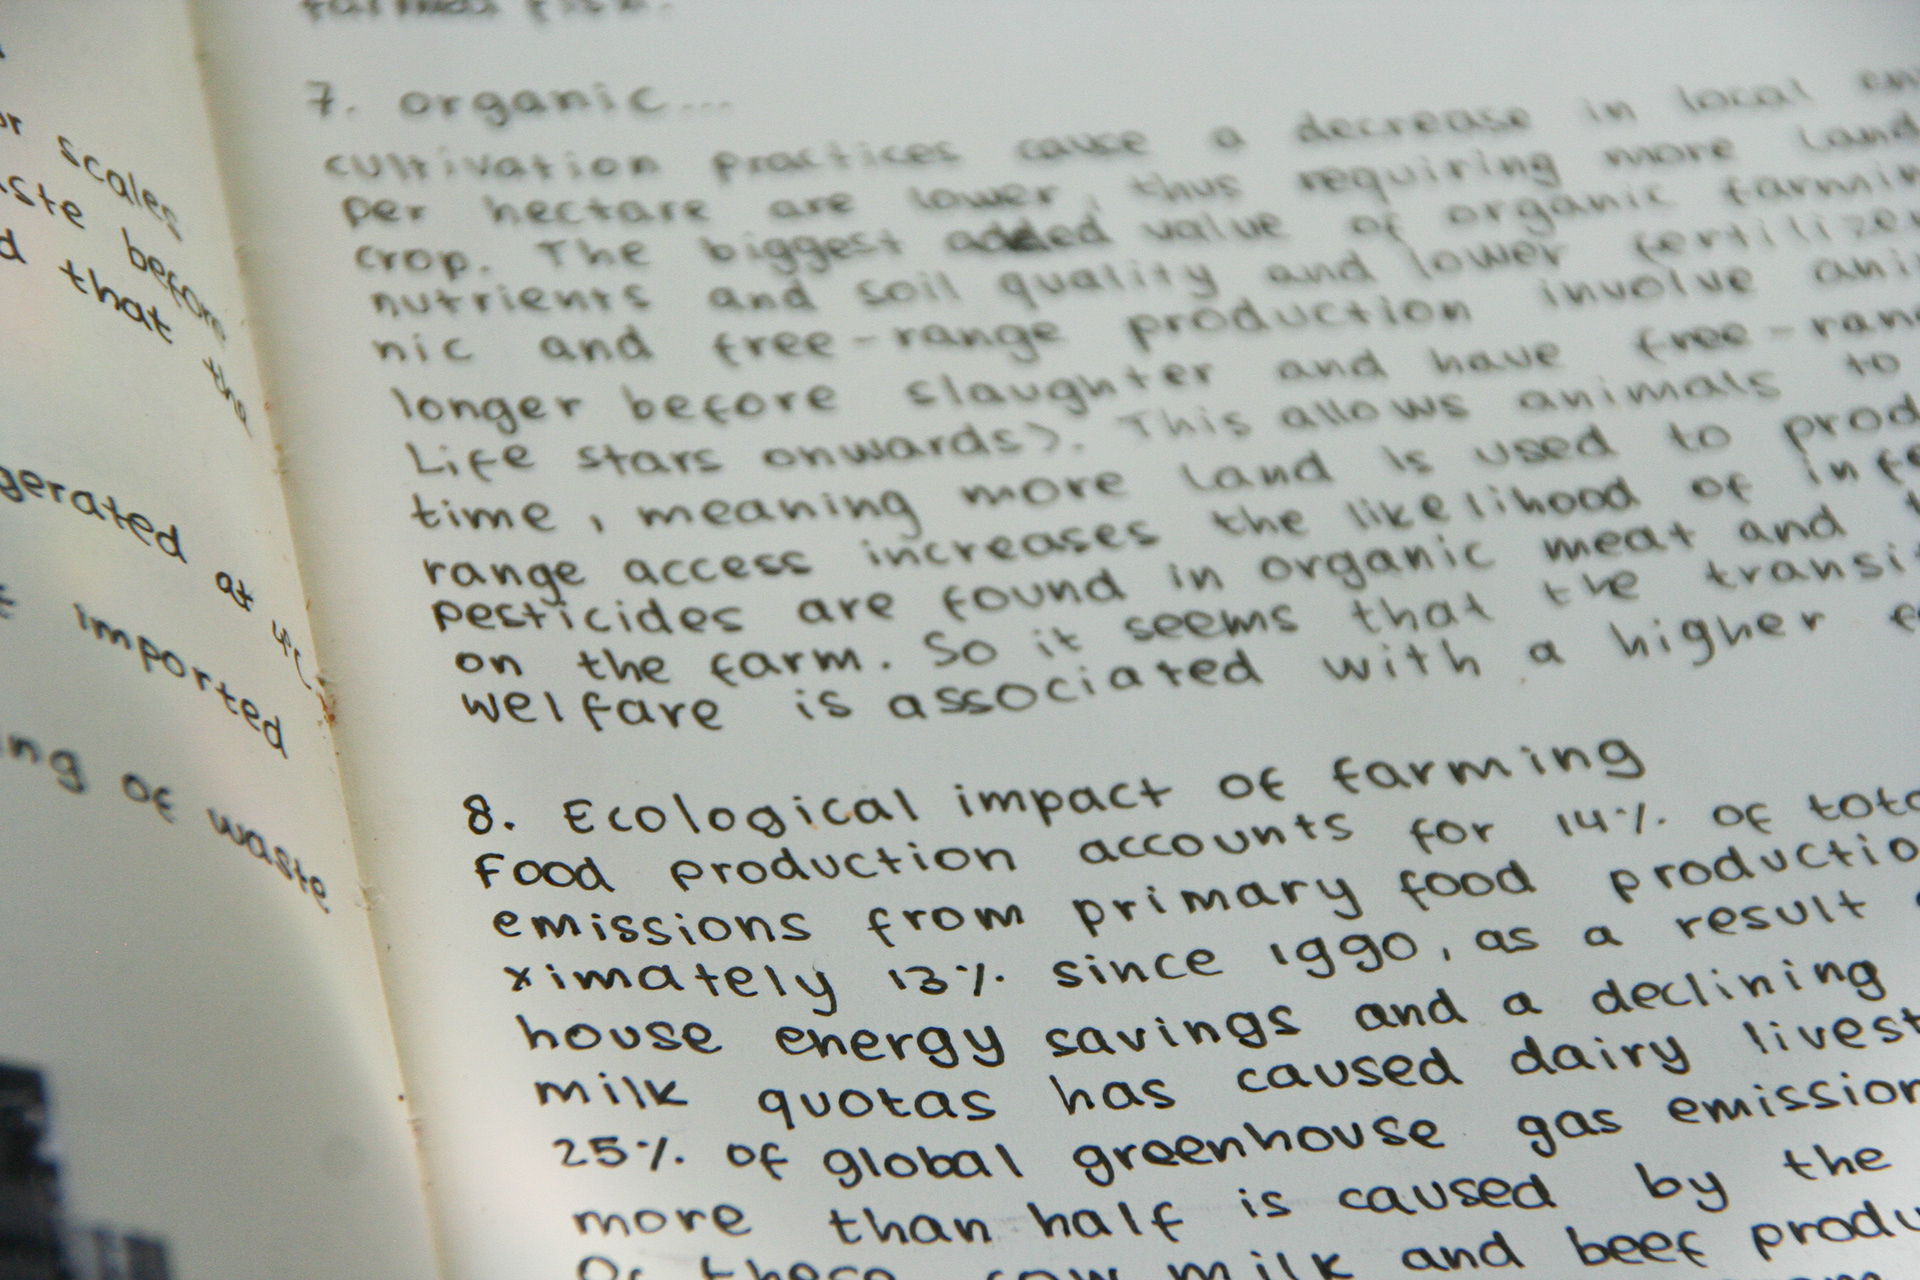 scales
before
d that the
gerated at 4°C
imported
ing of waste
farmed fish.
7. organic...
cultivation practices cause a decrease in local
per hectare are lower, thus requiring more land
crop. The biggest added value of organic farmin
nutrients and soil quality and lower fertilizer
nic and free-range production involve ani
longer before slaughter and have free-ran
Life stars onwards). This allows animals to
time, meaning more land is used to prod
range access increases the likelihood of infe
pesticides are found in organic meat and
on the farm. So it seems that the transi
welfare is associated with a higher
8. Ecological impact of farming
Food production accounts for 14% of tota
emissions from primary food productio
ximately 13% since 1990, as a result
house energy savings and a declining
milk quotas has caused dairy livest
25% of global greenhouse gas emission
more than half is caused by the
Of these, cow milk and beef produ